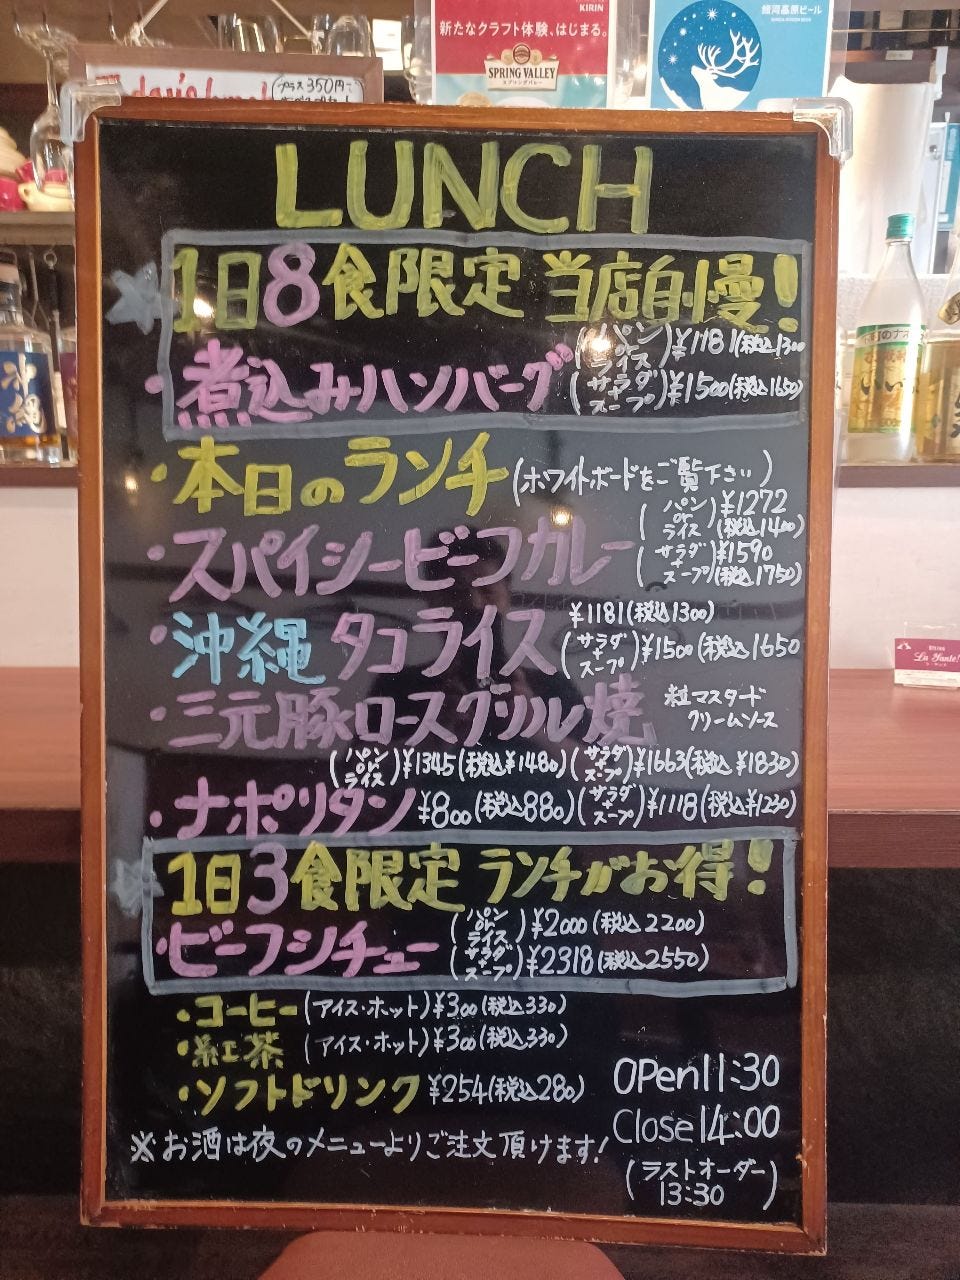 KIRIN
新たなクラフト体験、はじまる。
SPRING VALLEY
スプリングバレー
銀河高原ビール
プラス350円で
LUNCH
1日8食限定 当店自慢!
・煮込みハンバーグ (パンorライス) ¥1181(税込1300
(サラダ+スープ) ¥1500(税込1650)
・本日のランチ (ホワイトボードをご覧下さい)
・スパイシービーフカレー (パンorライス) ¥1272(税込1400)
(サラダ+スープ) ¥1590(税込1750)
・沖縄タコライス ¥1181(税込1300)
(サラダ+スープ) ¥1500(税込1650
・三元豚ロースグリル焼 粒マスタードクリームソース
(パンorライス) ¥1345(税込¥1480) (サラダ+スープ) ¥1663(税込¥1830)
・ナポリタン ¥800(税込880) (サラダ+スープ) ¥1118(税込¥1230)
1日3食限定 ランチがお得!
・ビーフシチュー (パンorライス) ¥2000(税込2200)
(サラダ+スープ) ¥2318(税込2550)
・コーヒー (アイス・ホット) ¥300(税込330)
・紅茶 (アイス・ホット) ¥300(税込330)
・ソフトドリンク ¥254(税込280)
OPen 11:30
Close 14:00
(ラストオーダー 13:30)
※お酒は夜のメニューよりご注文頂けます!
沖縄